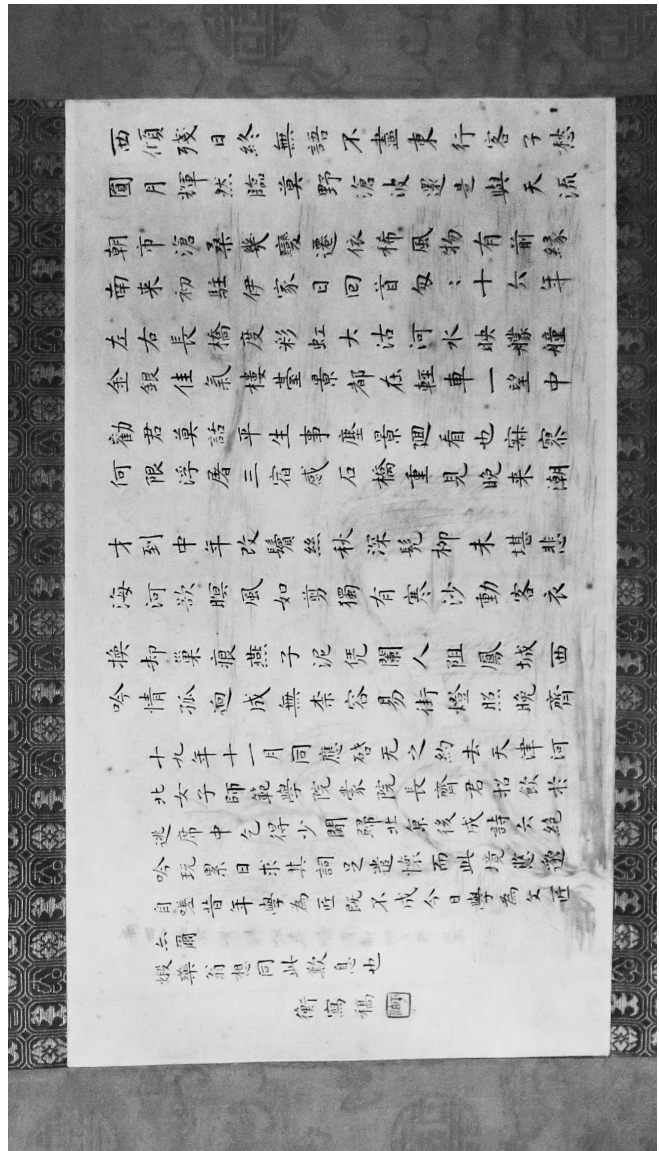 西傾殘日終無語不盡東行客子愁
圓月輝然臨莫野滄波還是與天流
朝市滄桑幾變遷依稀風物有前緣
南来初駐伊家日回首匆〻十六年
左右長橋度彩虹大沽河水映艨艟
金銀佳氣樓臺景都在輕車一望中
勸君莫詰平生事塵景廻看也寂寥
何限浮屠三宿感石橋重見晚来潮
才到中年改鬢絲秋深髡柳未堪悲
海河欲暝風如剪獨有寒沙動客衣
換却巢痕燕子泥凭闌人阻鳳城西
吟情孤迥成無柰容易街燈照晚齊
十九年十一月同應啓无之約去天津河
北女子師範學院蒙院長齊君招飲於
逃席中乞得少閒歸北京後成詩六絕
吟玩累日求其詞足遣懷而此境悲邈
自嗟昔年學為匠既不成今日學為文匠
亦爾
嘏藥翁想同此歎息也
衡寫稿